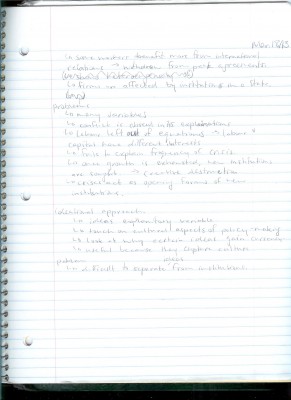 Mar. 18/13
↳ some workers benefit more from international
relations → withdraw from past agreements
↳ firms are affected by institutions in a state
problems
↳ many variables
↳ conflict is absent in its explanations
↳ Labour left out of equations → labour +
capital have different interests
↳ fails to explain frequency of crisis
↳ once growth is exhausted, new institutions
are sought → creative destruction
↳ as opening
institutions.
ideational approach
↳ ideas explanatory variable
↳ touch on cultural aspects of policy making
↳ look at why certain ideas gain currency
↳ useful because they capture
problem
ideas
↳ difficult to separate from institutions